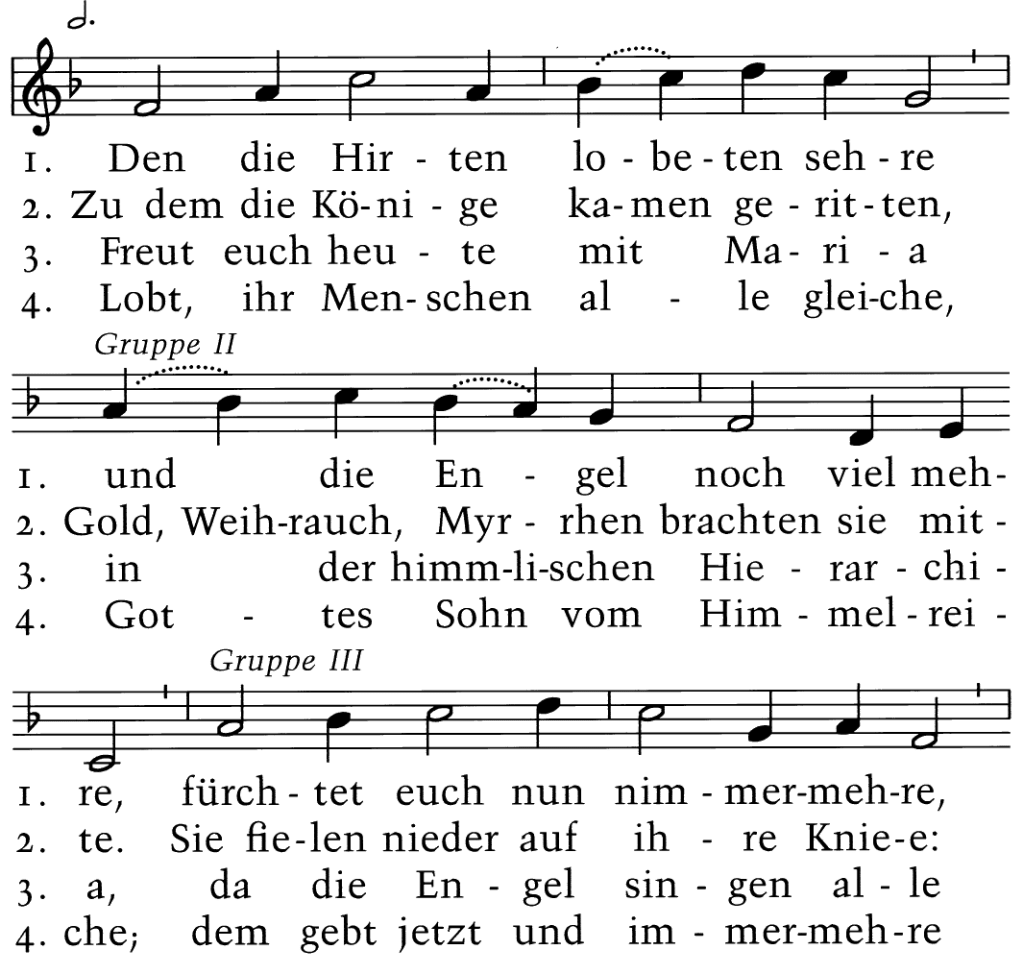 1. Den die Hir - ten lo - be - ten seh - re
2. Zu dem die Kö - ni - ge ka - men ge - rit - ten,
3. Freut euch heu - te mit Ma - ri - a
4. Lobt, ihr Men - schen al - le glei - che,
Gruppe II
1. und die En - gel noch viel meh -
2. Gold, Weih - rauch, Myr - rhen brachten sie mit -
3. in der himm - li - schen Hie - rar - chi -
4. Got - tes Sohn vom Him - mel - rei -
Gruppe III
1. re, fürch - tet euch nun nim - mer - meh - re,
2. te. Sie fie - len nieder auf ih - re Knie - e:
3. a, da die En - gel sin - gen al - le
4. che; dem gebt jetzt und im - mer - meh - re